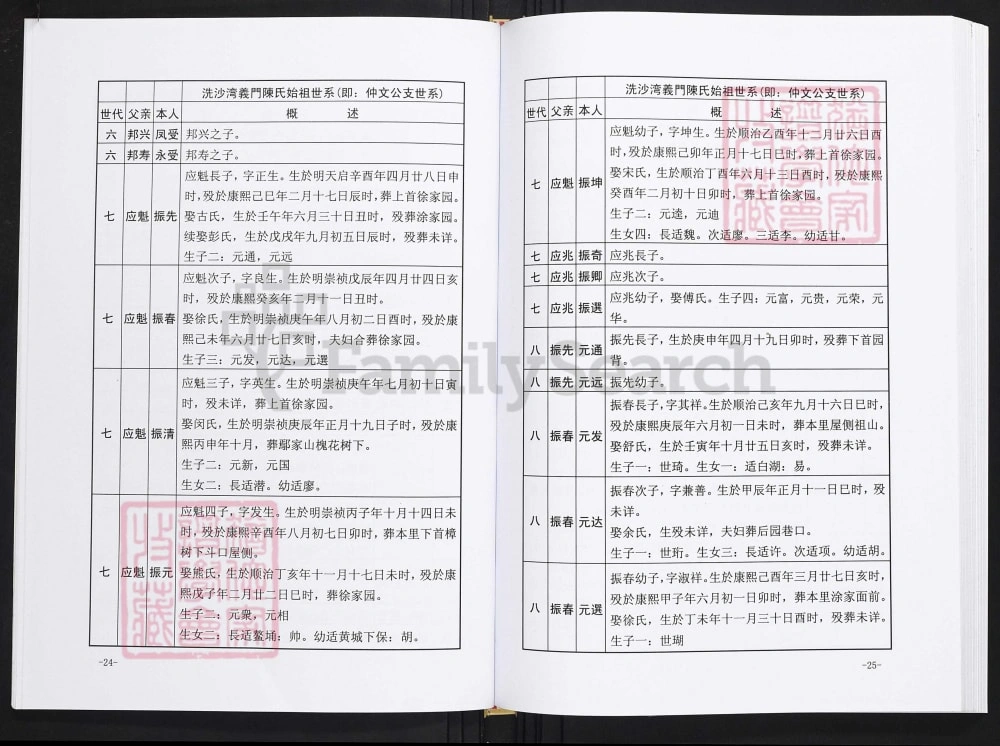 洗沙湾義門陳氏始祖世系(即：仲文公支世系)
世代 父亲 本人 概述
六 邦兴 凤受 邦兴之子。
六 邦寿 永受 邦寿之子。
七 应魁 振先
应魁長子，字正生。生於明天启辛酉年四月廿八日申
时，殁於康熙己巳年二月十七日辰时，葬上首徐家园。
娶古氏，生於壬午年六月三十日丑时，殁葬涂家园。
续娶彭氏，生於戊戌年九月初五日辰时，殁葬未详。
生子二：元通，元远
七 应魁 振春
应魁次子，字良生。生於明崇祯戊辰年四月廿四日亥
时，殁於康熙癸亥年二月十一日丑时。
娶徐氏，生於明崇祯庚午年八月初二日酉时，殁於康
熙己未年六月廿七日亥时，夫妇合葬徐家园。
生子三：元发，元达，元選
七 应魁 振清
应魁三子，字英生。生於明崇祯庚午年七月初十日寅
时，殁未详，葬上首徐家园。
娶闵氏，生於明崇祯庚辰年正月十九日子时，殁於康
熙丙申年十月，葬鄢家山槐花树下。
生子二：元新，元国
生女二：長适潜。幼适廖。
七 应魁 振元
应魁四子，字发生。生於明崇祯丙子年十月十四日未
时，殁於康熙辛酉年八月初七日卯时，葬本里下首樟
树下斗口屋侧。
娶熊氏，生於顺治丁亥年十一月十七日未时，殁於康
熙戊子年二月廿二日巳时，葬徐家园。
生子二：元衆，元相
生女二：長适鳌埇：帅。幼适黄城下保：胡。
-24-
洗沙湾義門陳氏始祖世系(即：仲文公支世系)
世代 父亲 本人 概述
七 应魁 振坤
应魁幼子，字坤生。生於顺治乙酉年十二月廿六日酉
时，殁於康熙己卯年正月十七日巳时，葬上首徐家园。
娶宋氏，生於顺治丁酉年六月十三日酉时，殁於康熙
癸酉年二月初十日卯时，葬上首徐家园。
生子二：元逵，元迪
生女四：長适魏。次适廖。三适李。幼适甘。
七 应兆 振奇 应兆長子。
七 应兆 振卿 应兆次子。
七 应兆 振選
应兆幼子，娶傅氏。生子四：元富，元贵，元荣，元
华。
八 振先 元通
振先長子，生於庚申年四月十九日卯时，殁葬下首园
背。
八 振先 元远 振先幼子。
八 振春 元发
振春長子，字其祥。生於顺治己亥年九月十六日巳时，
殁於康熙庚辰年六月初一日未时，葬本里屋侧祖山。
娶舒氏，生於壬寅年十月廿五日亥时，殁葬未详。
生子一：世琦。生女一：适白湖：易。
八 振春 元达
振春次子，字兼善。生於甲辰年正月十一日巳时，殁
未详。
娶余氏，生殁未详，夫妇葬后园巷口。
生子一：世珩。生女三：長适许。次适项。幼适胡。
八 振春 元選
振春幼子，字淑祥。生於康熙己酉年三月廿七日亥时，
殁於康熙甲子年六月初一日卯时，葬本里涂家面前。
娶徐氏，生於丁未年十一月三十日酉时，殁葬未详。
生子一：世瑚
-25-
FamilySearch